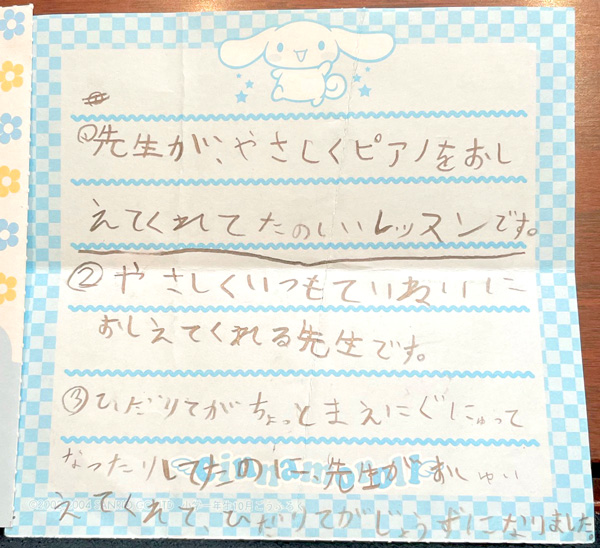 ①先生が、やさしくピアノをおし
えてくれてたのしいレッスンです。
②やさしくいつもていねいに
おしえてくれる先生です。
③ひだりてがちょっとまえにぐにゅって
なったりしてたのに、先生が
えてくれて、ひだりてがじょうずになりました